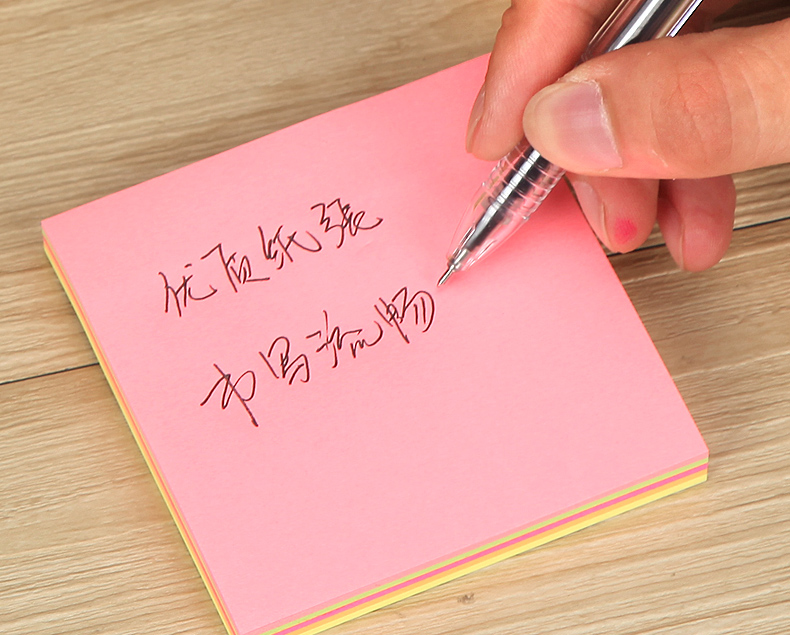 优质纸張
书写流畅